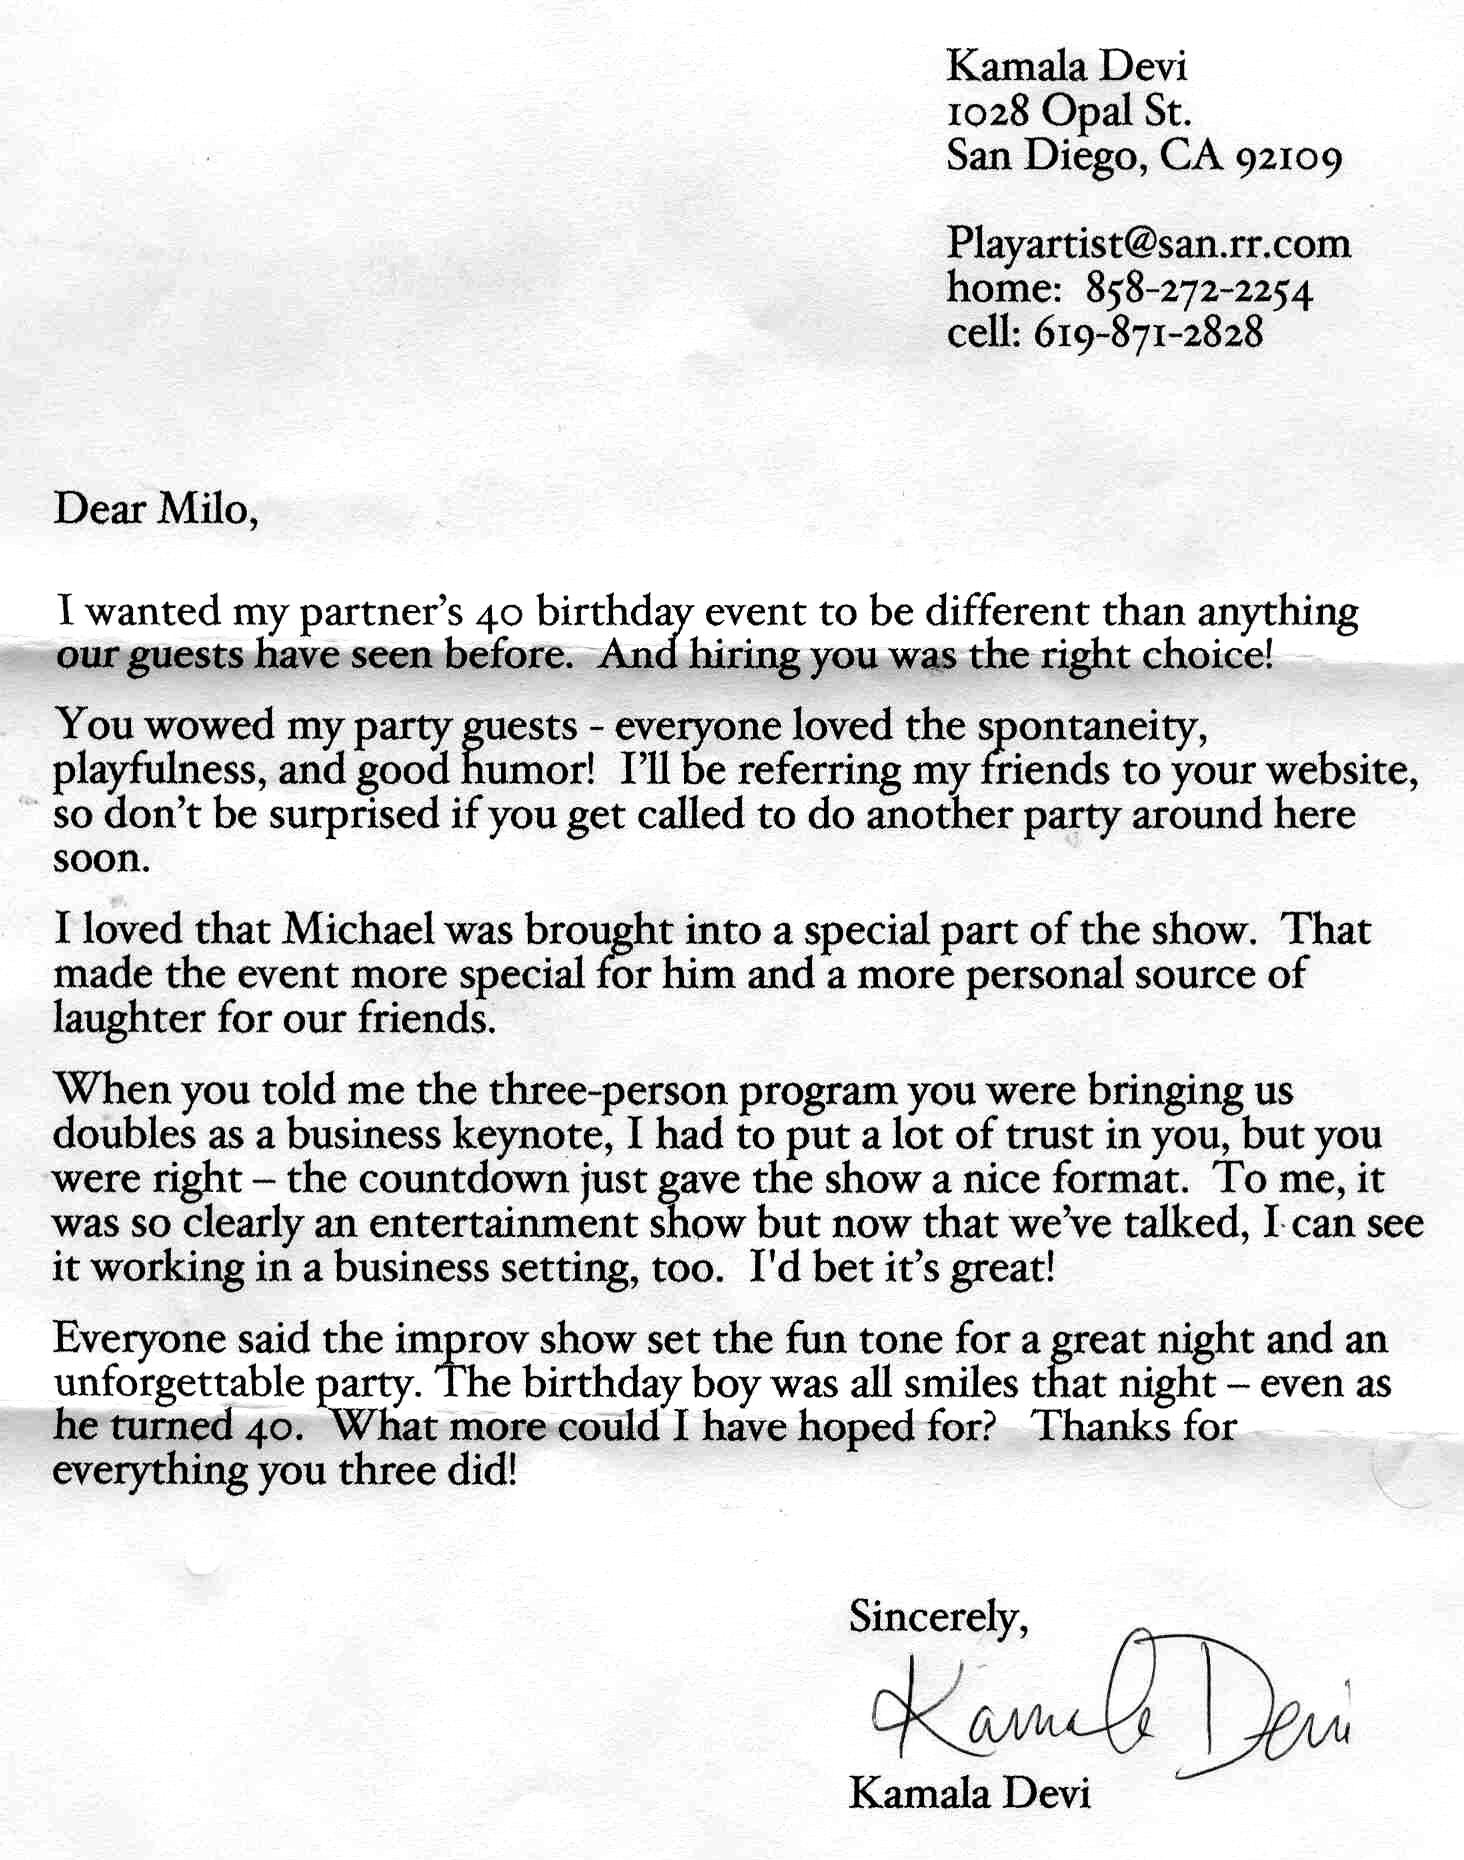 Kamala Devi
1028 Opal St.
San Diego, CA 92109
Playartist@san.rr.com
home:  858-272-2254
cell: 619-871-2828
Dear Milo,
I wanted my partner’s 40 birthday event to be different than anything
our guests have seen before.  And hiring you was the right choice!
You wowed my party guests - everyone loved the spontaneity,
playfulness, and good humor!  I’ll be referring my friends to your website,
so don’t be surprised if you get called to do another party around here
soon.
I loved that Michael was brought into a special part of the show.  That
made the event more special for him and a more personal source of
laughter for our friends.
When you told me the three-person program you were bringing us
doubles as a business keynote, I had to put a lot of trust in you, but you
were right – the countdown just gave the show a nice format.  To me, it
was so clearly an entertainment show but now that we’ve talked, I can see
it working in a business setting, too.  I'd bet it’s great!
Everyone said the improv show set the fun tone for a great night and an
unforgettable party. The birthday boy was all smiles that night – even as
he turned 40.  What more could I have hoped for?   Thanks for
everything you three did!
Sincerely,
Kamala Devi
Kamala Devi